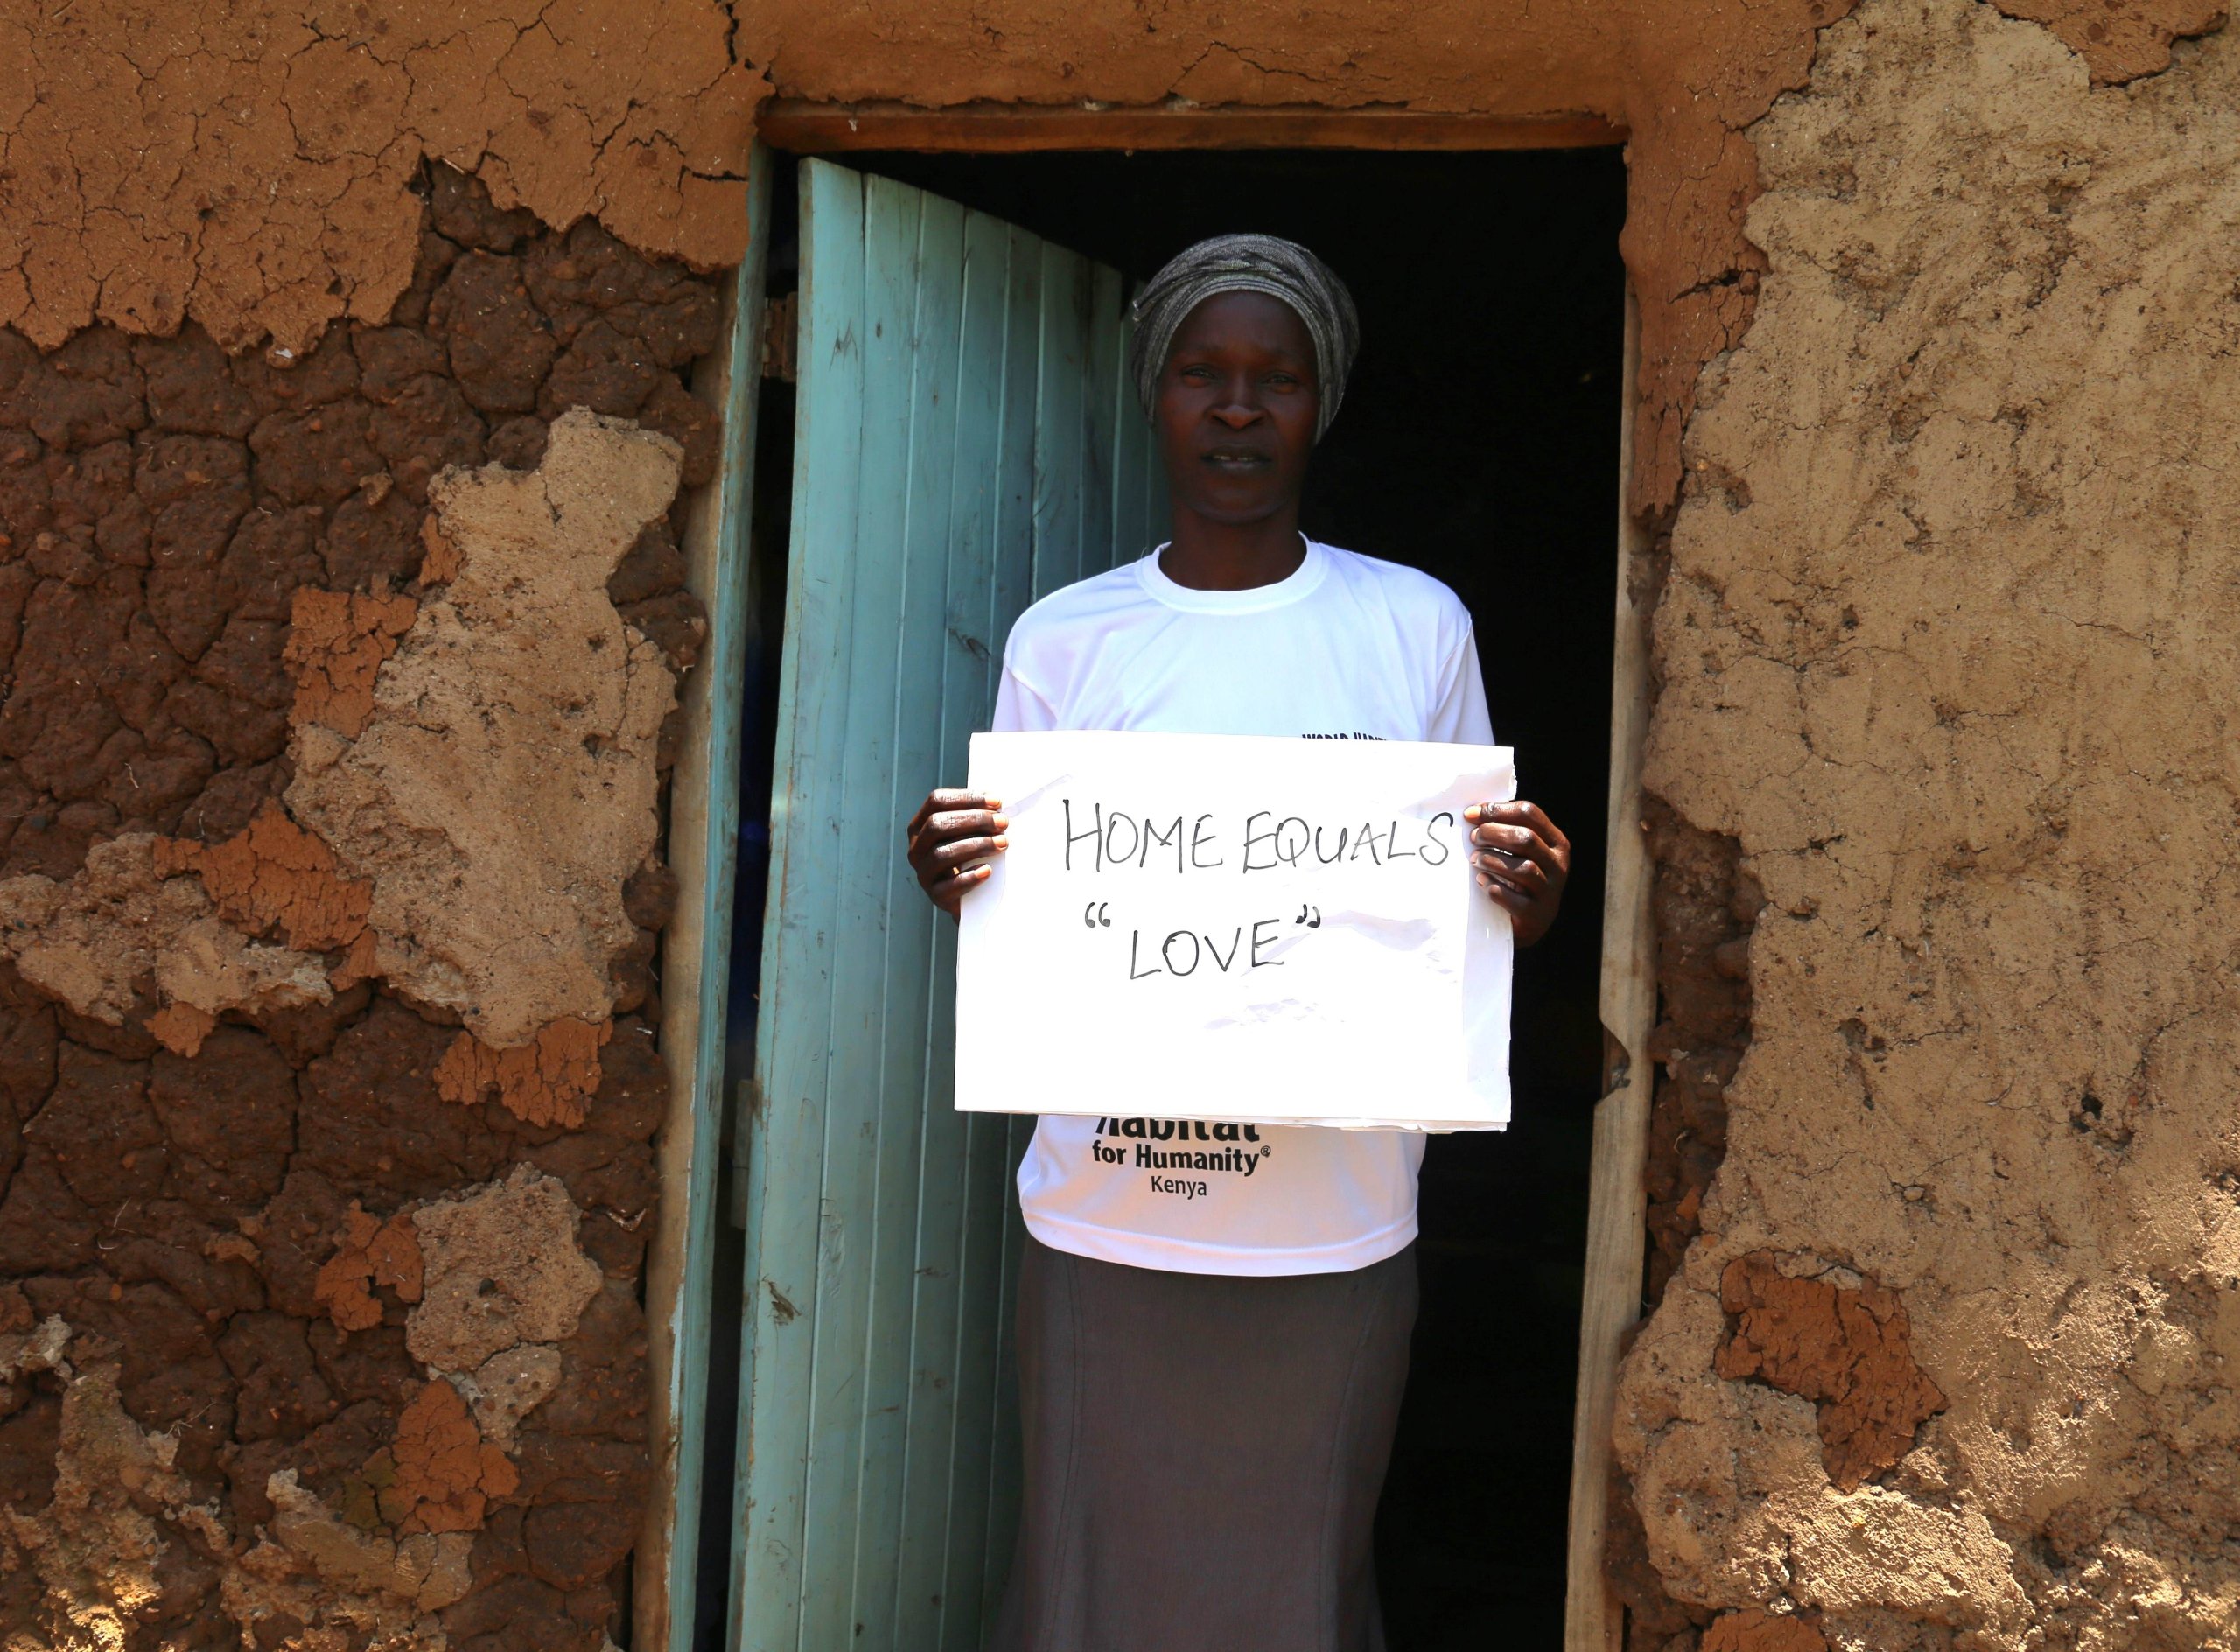 HOME EQUALS
“LOVE”
habitat
for Humanity®
Kenya